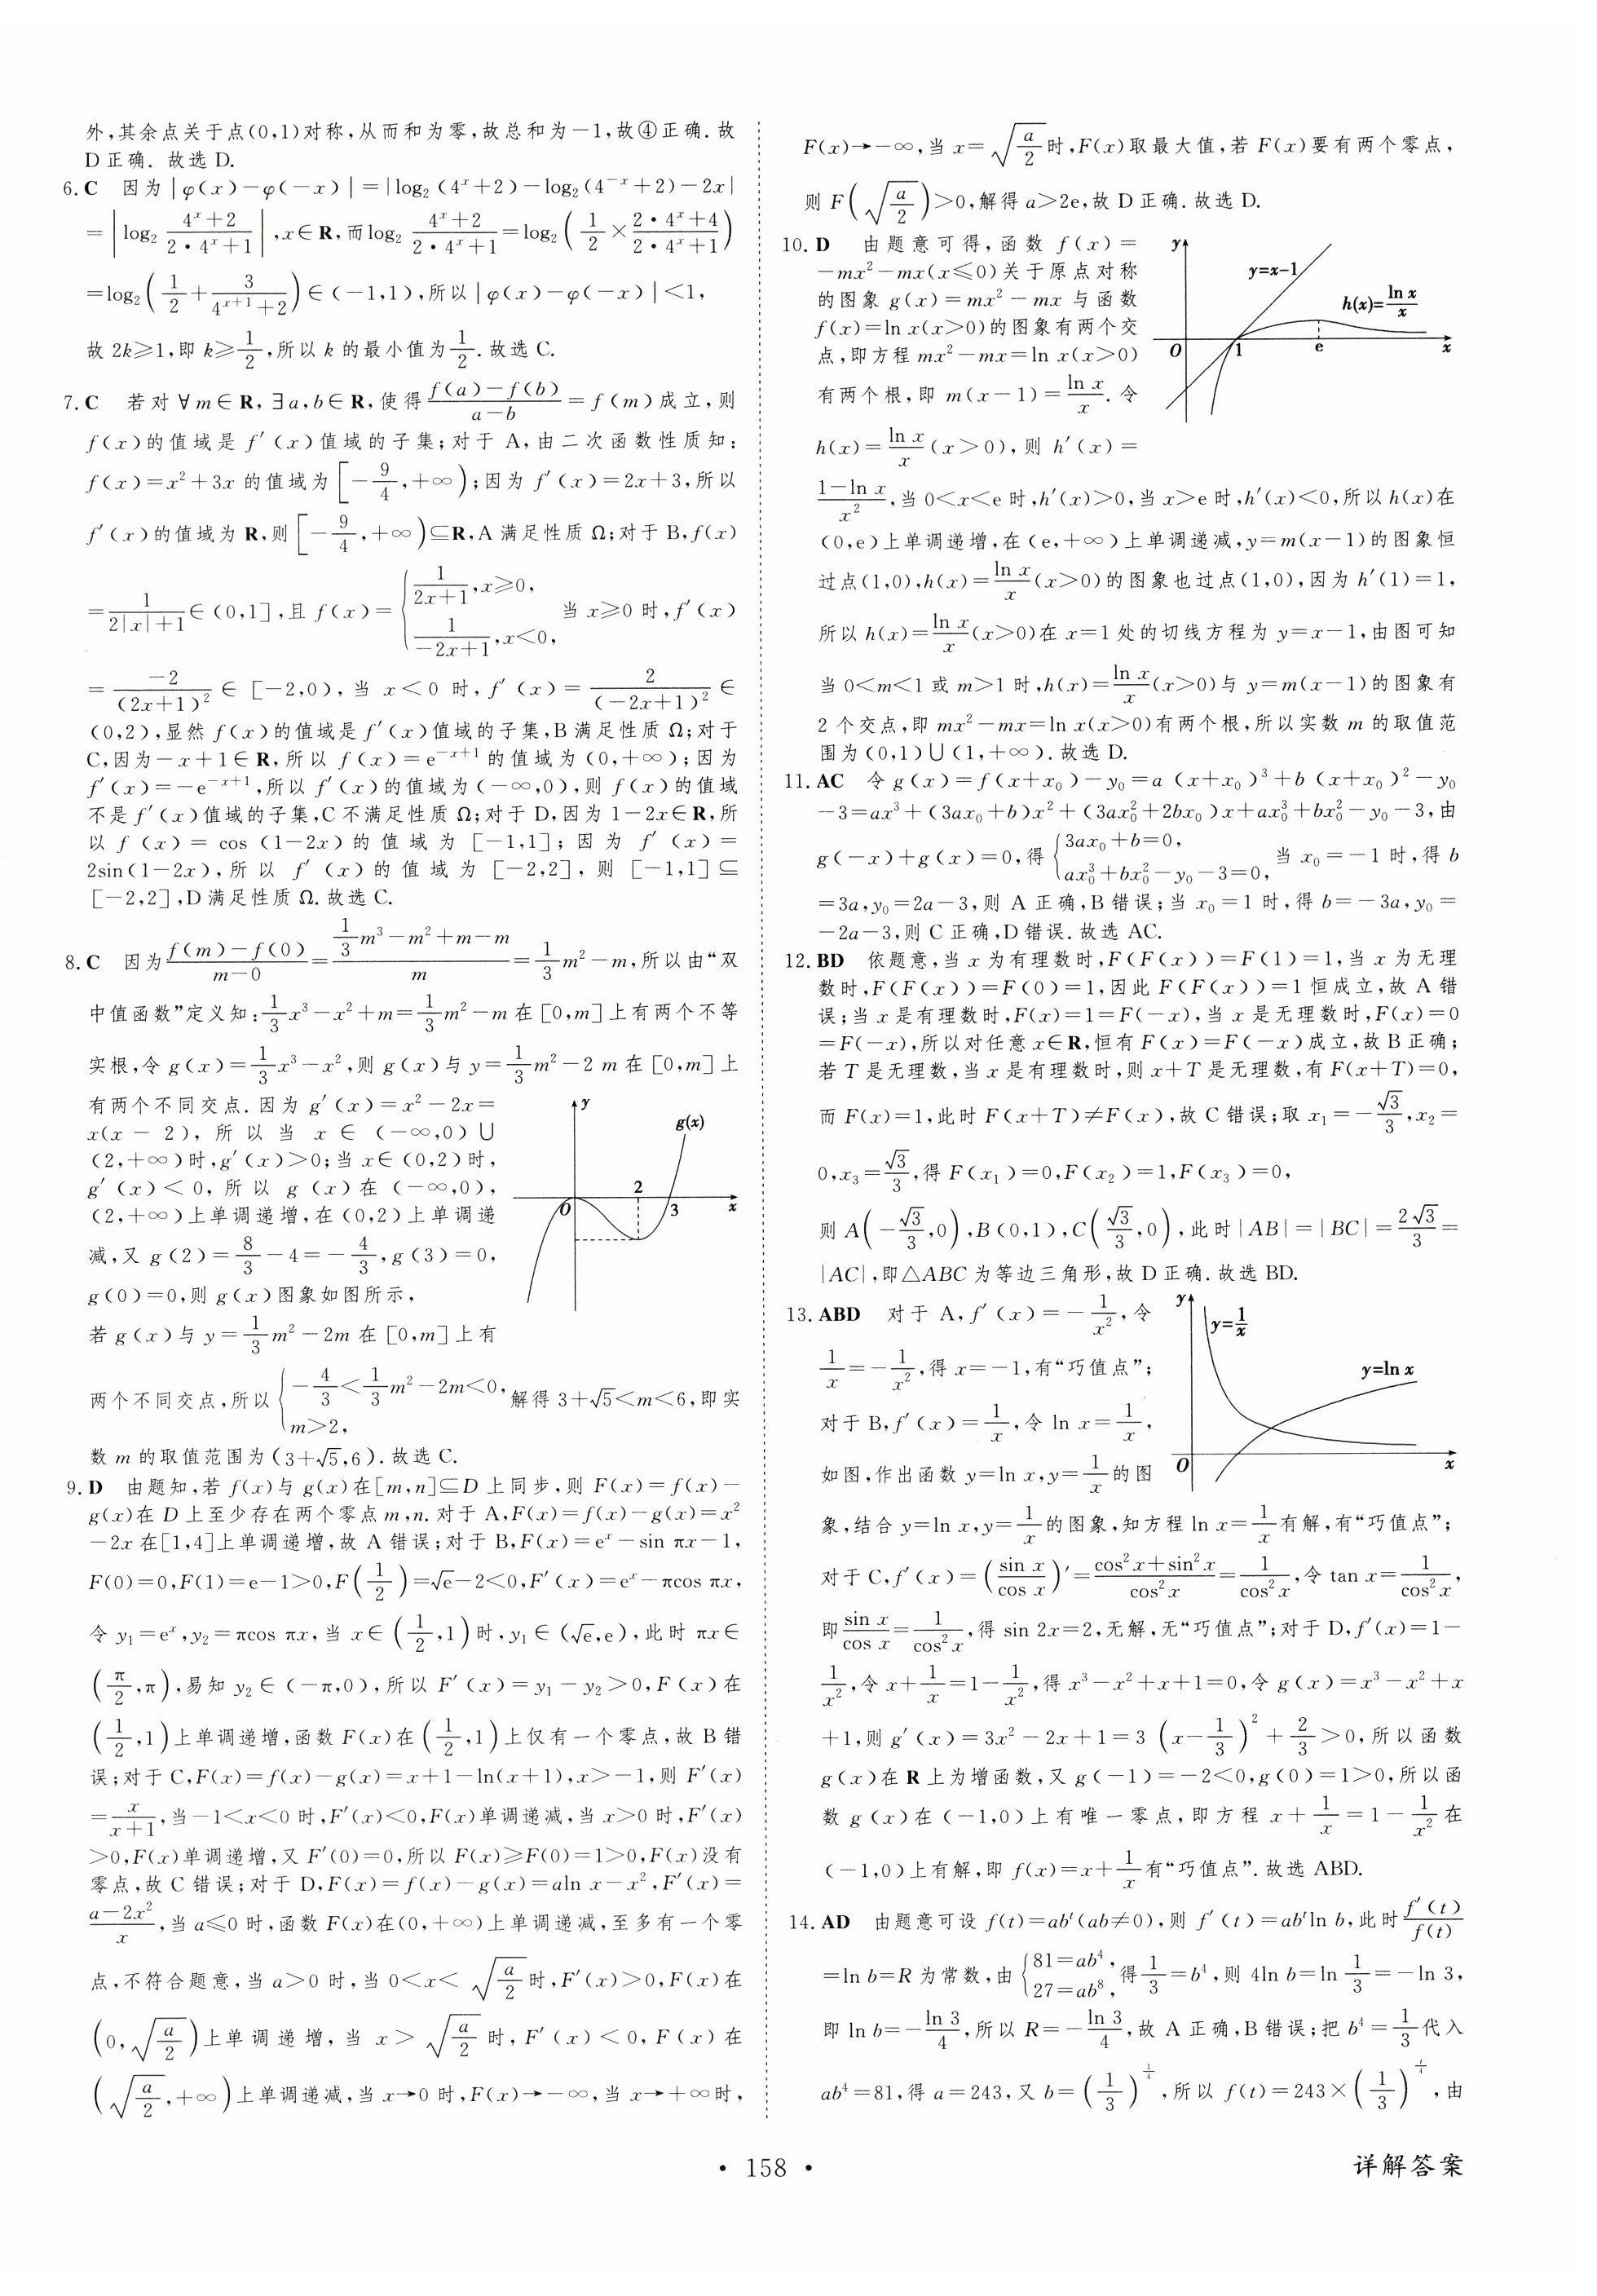 外,其余点关于点(0,1)对称,从而和为零,故总和为-1,故④正确.故
D正确. 故选D.
6.C 因为|φ(x)-φ(-x)|=|log₂(4ˣ+2)-log₂(4⁻ˣ+2)-2x|
=|log₂ (4ˣ+2)/(2·4ˣ+1)|,x∈R,而log₂ (4ˣ+2)/(2·4ˣ+1)=log₂(1/2×(2·4ˣ+4)/(2·4ˣ+1))
=log₂(1/2+3/(4ˣ⁺¹+2))∈(-1,1),所以|φ(x)-φ(-x)|<1,
故2k≥1,即k≥1/2,所以k的最小值为1/2.故选C.
7.C 若对∀m∈R,∃a,b∈R,使得(f(a)-f(b))/(a-b)=f(m)成立,则
f(x)的值域是f′(x)值域的子集;对于A,由二次函数性质知:
f(x)=x²+3x的值域为[-9/4,+∞);因为f′(x)=2x+3,所以
f′(x)的值域为R,则[-9/4,+∞)⊆R,A满足性质Ω;对于B,f(x)
=1/(2|x|+1)∈(0,1],且f(x)={1/(2x+1),x≥0, 1/(-2x+1),x<0, 当x≥0时,f′(x)
=-2/(2x+1)²∈[-2,0),当x<0时,f′(x)=2/(-2x+1)²∈
(0,2),显然f(x)的值域是f′(x)值域的子集,B满足性质Ω;对于
C,因为-x+1∈R,所以f(x)=e⁻ˣ⁺¹的值域为(0,+∞);因为
f′(x)=-e⁻ˣ⁺¹,所以f′(x)的值域为(-∞,0),则f(x)的值域
不是f′(x)值域的子集,C不满足性质Ω;对于D,因为1-2x∈R,所
以f(x)=cos(1-2x)的值域为[-1,1];因为f′(x)=
2sin(1-2x),所以f′(x)的值域为[-2,2],则[-1,1]⊆
[-2,2],D满足性质Ω.故选C.
8.C 因为(f(m)-f(0))/(m-0)=(1/3m³-m²+m-m)/m=1/3m²-m,所以由“双
中值函数”定义知:1/3x³-x²+m=1/3m²-m在[0,m]上有两个不等
实根,令g(x)=1/3x³-x²,则g(x)与y=1/3m²-2 m在[0,m]上
有两个不同交点.因为g′(x)=x²-2x=
x(x-2),所以当x∈(-∞,0)∪
(2,+∞)时,g′(x)>0;当x∈(0,2)时,
g′(x)<0,所以g(x)在(-∞,0),
(2,+∞)上单调递增,在(0,2)上单调递
减,又g(2)=8/3-4=-4/3,g(3)=0,
g(0)=0,则g(x)图象如图所示,
y
g(x)
2
O
3
x
若g(x)与y=1/3m²-2m在[0,m]上有
两个不同交点,所以{-4/3<1/3m²-2m<0, m>2, 解得3+√5<m<6,即实
数m的取值范围为(3+√5,6).故选C.
9.D 由题知,若f(x)与g(x)在[m,n]⊆D上同步,则F(x)=f(x)-
g(x)在D上至少存在两个零点m,n.对于A,F(x)=f(x)-g(x)=x²
-2x在[1,4]上单调递增,故A错误;对于B,F(x)=eˣ-sin πx-1,
F(0)=0,F(1)=e-1>0,F(1/2)=√e-2<0,F′(x)=eˣ-πcos πx,
令y₁=eˣ,y₂=πcos πx,当x∈(1/2,1)时,y₁∈(√e,e),此时πx∈
(π/2,π),易知y₂∈(-π,0),所以F′(x)=y₁-y₂>0,F(x)在
(1/2,1)上单调递增,函数F(x)在(1/2,1)上仅有一个零点,故B错
误;对于C,F(x)=f(x)-g(x)=x+1-ln(x+1),x>-1,则F′(x)
=x/(x+1),当-1<x<0时,F′(x)<0,F(x)单调递减,当x>0时,F′(x)
>0,F(x)单调递增,又F′(0)=0,所以F(x)≥F(0)=1>0,F(x)没有
零点,故C错误;对于D,F(x)=f(x)-g(x)=aln x-x²,F′(x)=
(a-2x²)/x,当a≤0时,函数F(x)在(0,+∞)上单调递减,至多有一个零
点,不符合题意,当a>0时,当0<x<√(a/2)时,F′(x)>0,F(x)在
(0,√(a/2))上单调递增,当x>√(a/2)时,F′(x)<0,F(x)在
(√(a/2),+∞)上单调递减,当x→0时,F(x)→-∞,当x→+∞时,
F(x)→-∞,当x=√(a/2)时,F(x)取最大值,若F(x)要有两个零点,
则F(√(a/2))>0,解得a>2e,故D正确.故选D.
10.D 由题意可得,函数f(x)=
-mx²-mx(x≤0)关于原点对称
的图象g(x)=mx²-mx与函数
f(x)=ln x(x>0)的图象有两个交
点,即方程mx²-mx=ln x(x>0)
有两个根,即m(x-1)=ln x/x.令
h(x)=ln x/x(x>0),则h′(x)=
y
y=x-1
h(x)=ln x/x
O
1
e
x
(1-ln x)/x²,当0<x<e时,h′(x)>0,当x>e时,h′(x)<0,所以h(x)在
(0,e)上单调递增,在(e,+∞)上单调递减,y=m(x-1)的图象恒
过点(1,0),h(x)=ln x/x(x>0)的图象也过点(1,0),因为h′(1)=1,
所以h(x)=ln x/x(x>0)在x=1处的切线方程为y=x-1,由图可知
当0<m<1或m>1时,h(x)=ln x/x(x>0)与y=m(x-1)的图象有
2个交点,即mx²-mx=ln x(x>0)有两个根,所以实数m的取值范
围为(0,1)∪(1,+∞).故选D.
11.AC 令g(x)=f(x+x₀)-y₀=a(x+x₀)³+b(x+x₀)²-y₀
-3=ax³+(3ax₀+b)x²+(3ax₀²+2bx₀)x+ax₀³+bx₀²-y₀-3,由
g(-x)+g(x)=0,得{3ax₀+b=0, ax₀³+bx₀²-y₀-3=0, 当x₀=-1时,得b
=3a,y₀=2a-3,则A正确,B错误;当x₀=1时,得b=-3a,y₀=
-2a-3,则C正确,D错误.故选AC.
12.BD 依题意,当x为有理数时,F(F(x))=F(1)=1,当x为无理
数时,F(F(x))=F(0)=1,因此F(F(x))=1恒成立,故A错
误;当x是有理数时,F(x)=1=F(-x),当x是无理数时,F(x)=0
=F(-x),所以对任意x∈R,恒有F(x)=F(-x)成立,故B正确;
若T是无理数,当x是有理数时,则x+T是无理数,有F(x+T)=0,
而F(x)=1,此时F(x+T)≠F(x),故C错误;取x₁=-√3/3,x₂=
0,x₃=√3/3,得F(x₁)=0,F(x₂)=1,F(x₃)=0,
则A(-√3/3,0),B(0,1),C(√3/3,0),此时|AB|=|BC|=2√3/3=
|AC|,即△ABC为等边三角形,故D正确.故选BD.
13.ABD 对于A,f′(x)=-1/x²,令
1/x=-1/x²,得x=-1,有“巧值点”;
对于B,f′(x)=1/x,令ln x=1/x,
如图,作出函数y=ln x,y=1/x的图
y
y=1/x
y=ln x
O
x
象,结合y=ln x,y=1/x的图象,知方程ln x=1/x有解,有“巧值点”;
对于C,f′(x)=(sin x/cos x)′=(cos²x+sin²x)/cos²x=1/cos²x,令tan x=1/cos²x,
即sin x/cos x=1/cos²x,得sin 2x=2,无解,无“巧值点”;对于D,f′(x)=1-
1/x²,令x+1/x=1-1/x²,得x³-x²+x+1=0,令g(x)=x³-x²+x
+1,则g′(x)=3x²-2x+1=3(x-1/3)²+2/3>0,所以函数
g(x)在R上为增函数,又g(-1)=-2<0,g(0)=1>0,所以函
数g(x)在(-1,0)上有唯一零点,即方程x+1/x=1-1/x²在
(-1,0)上有解,即f(x)=x+1/x有“巧值点”.故选ABD.
14.AD 由题意可设f(t)=abᵗ(ab≠0),则f′(t)=abᵗln b,此时f′(t)/f(t)
=ln b=R为常数,由{81=ab⁴, 27=ab⁸, 得1/3=b⁴,则4ln b=ln 1/3=-ln 3,
即ln b=-ln 3/4,所以R=-ln 3/4,故A正确,B错误;把b⁴=1/3代入
ab⁴=81,得a=243,又b=(1/3)^(1/4),所以f(t)=243×(1/3)^(t/4),由
• 158 •
详解答案